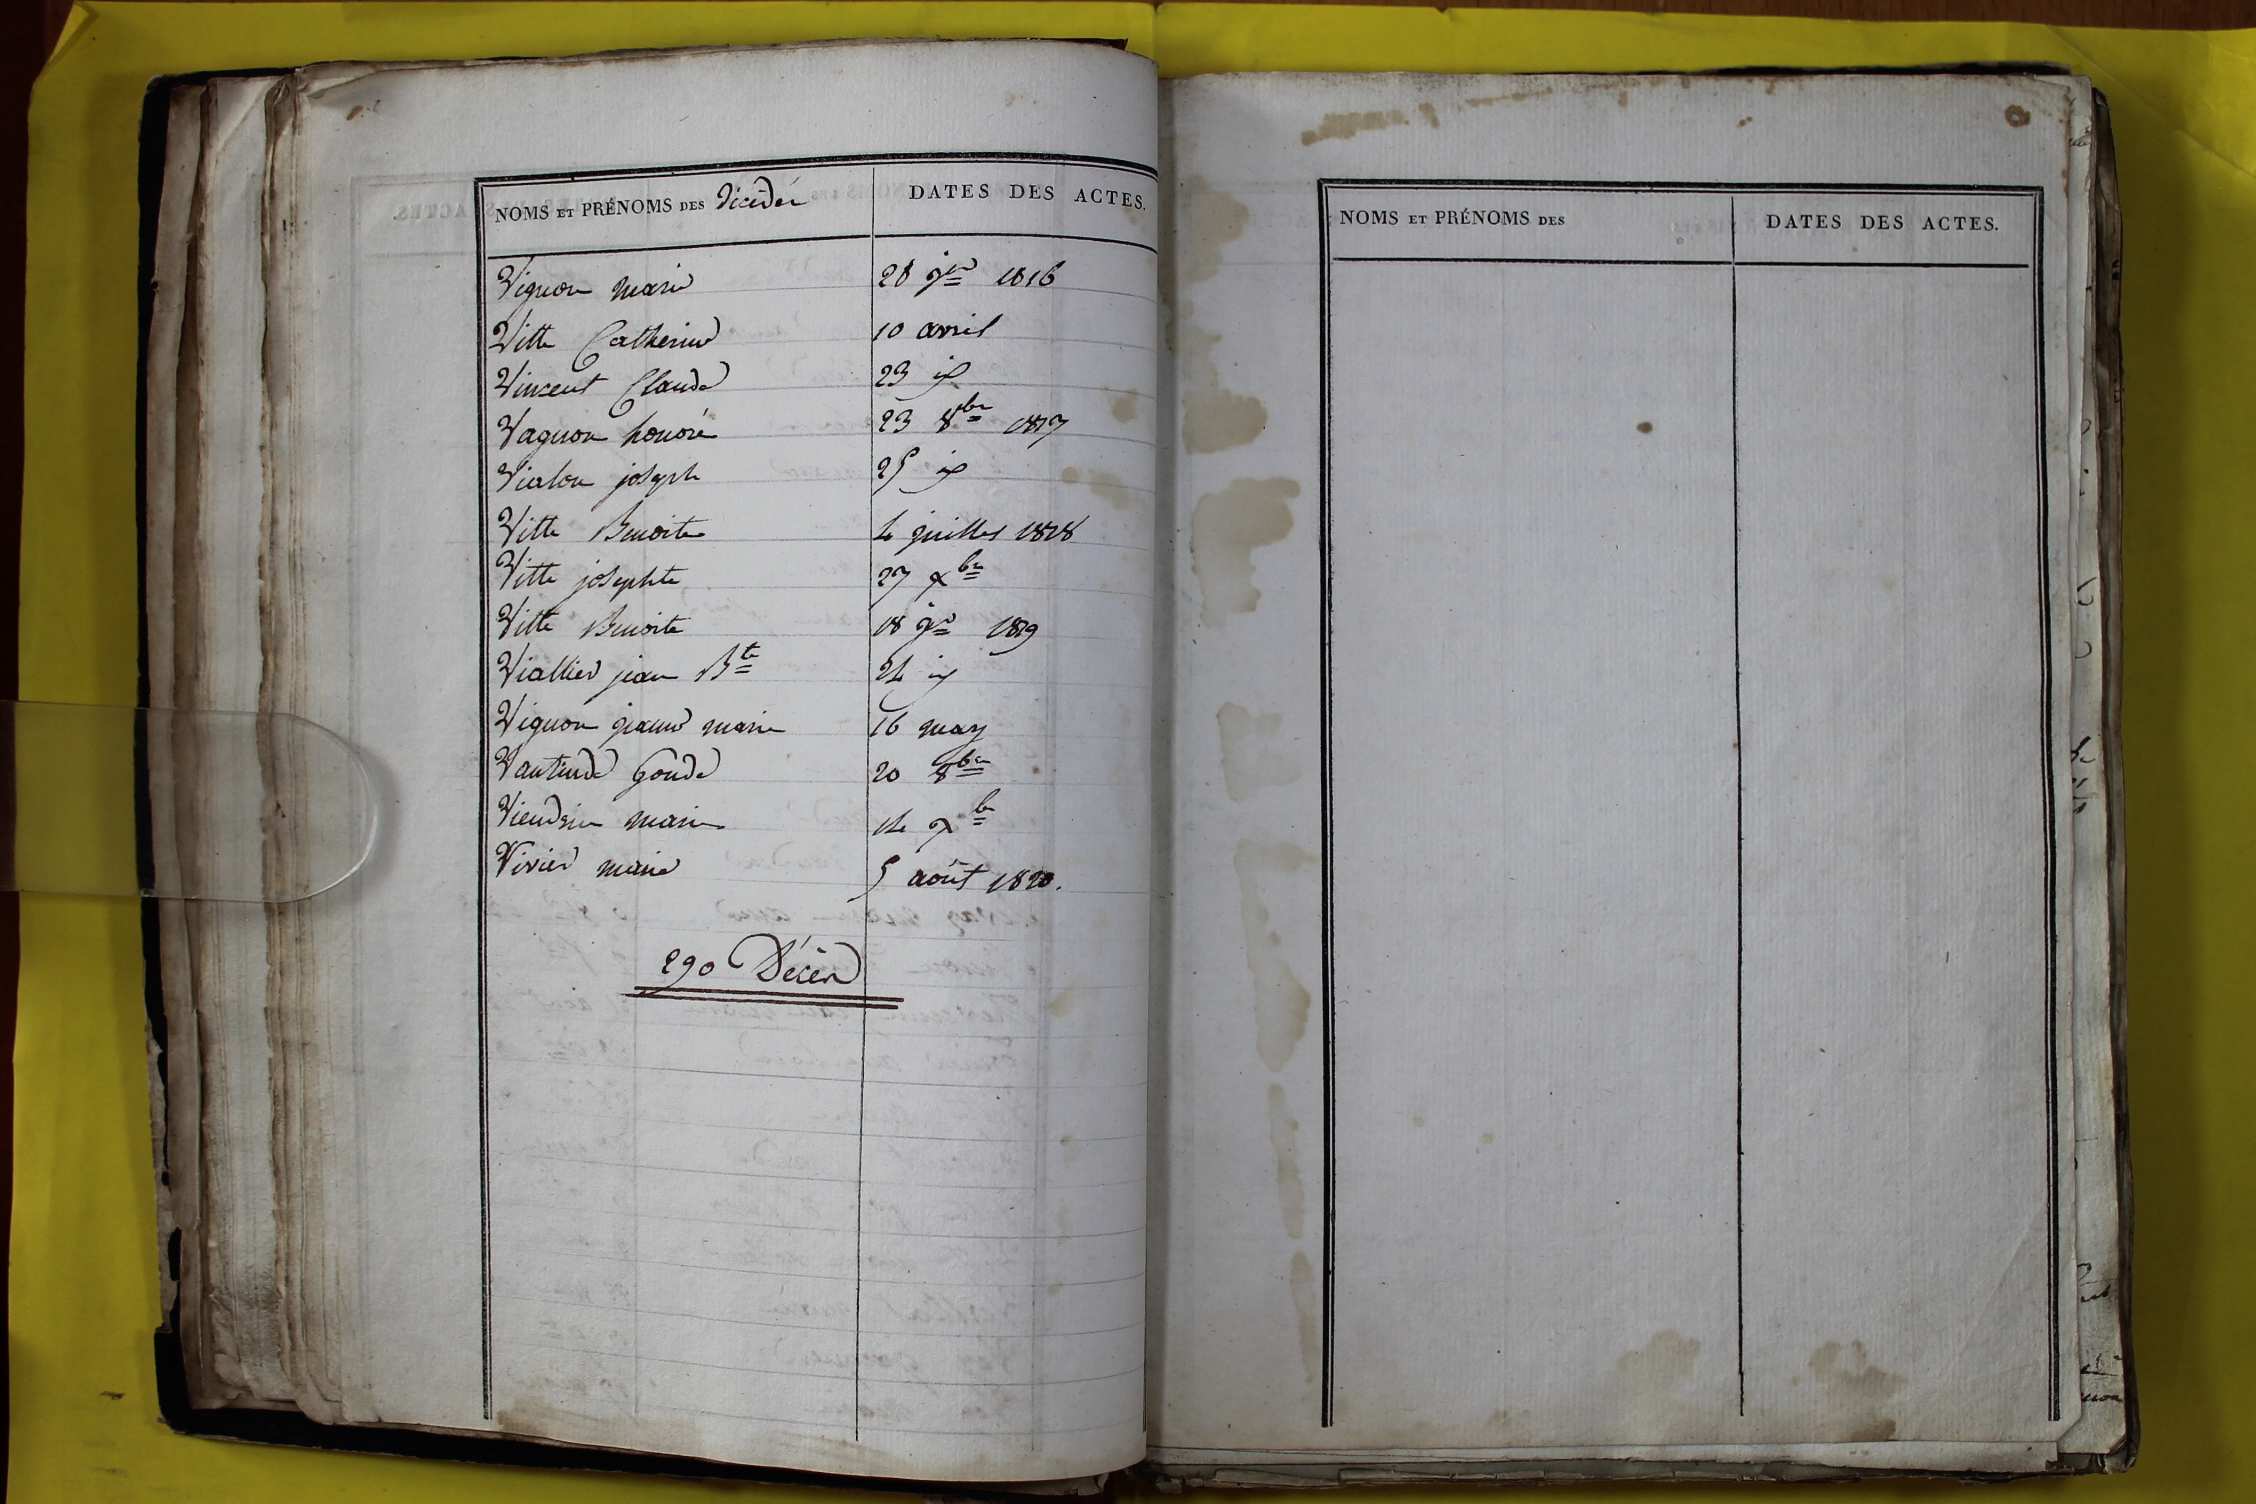 NOMS ET PRÉNOMS DES Décédés DATES DES ACTES.
Vignon marie 28 jer 1816
Vitte Catherine 10 avril
Vincent Claude 23
Vagnon honoré 23 8bre 1817
Vialon joseph 25
Vitte Benoite 4 juillet 1818
Vitte josephte 27 xbre
Vitte Benoite 18 jer 1819
Viallier jean Bte 24
Vignon jeanne marie 16 may
20 8bre
marie 14 xbre
Vivier marie 5 août 1820.
290 Décès
NOMS ET PRÉNOMS DES DATES DES ACTES.